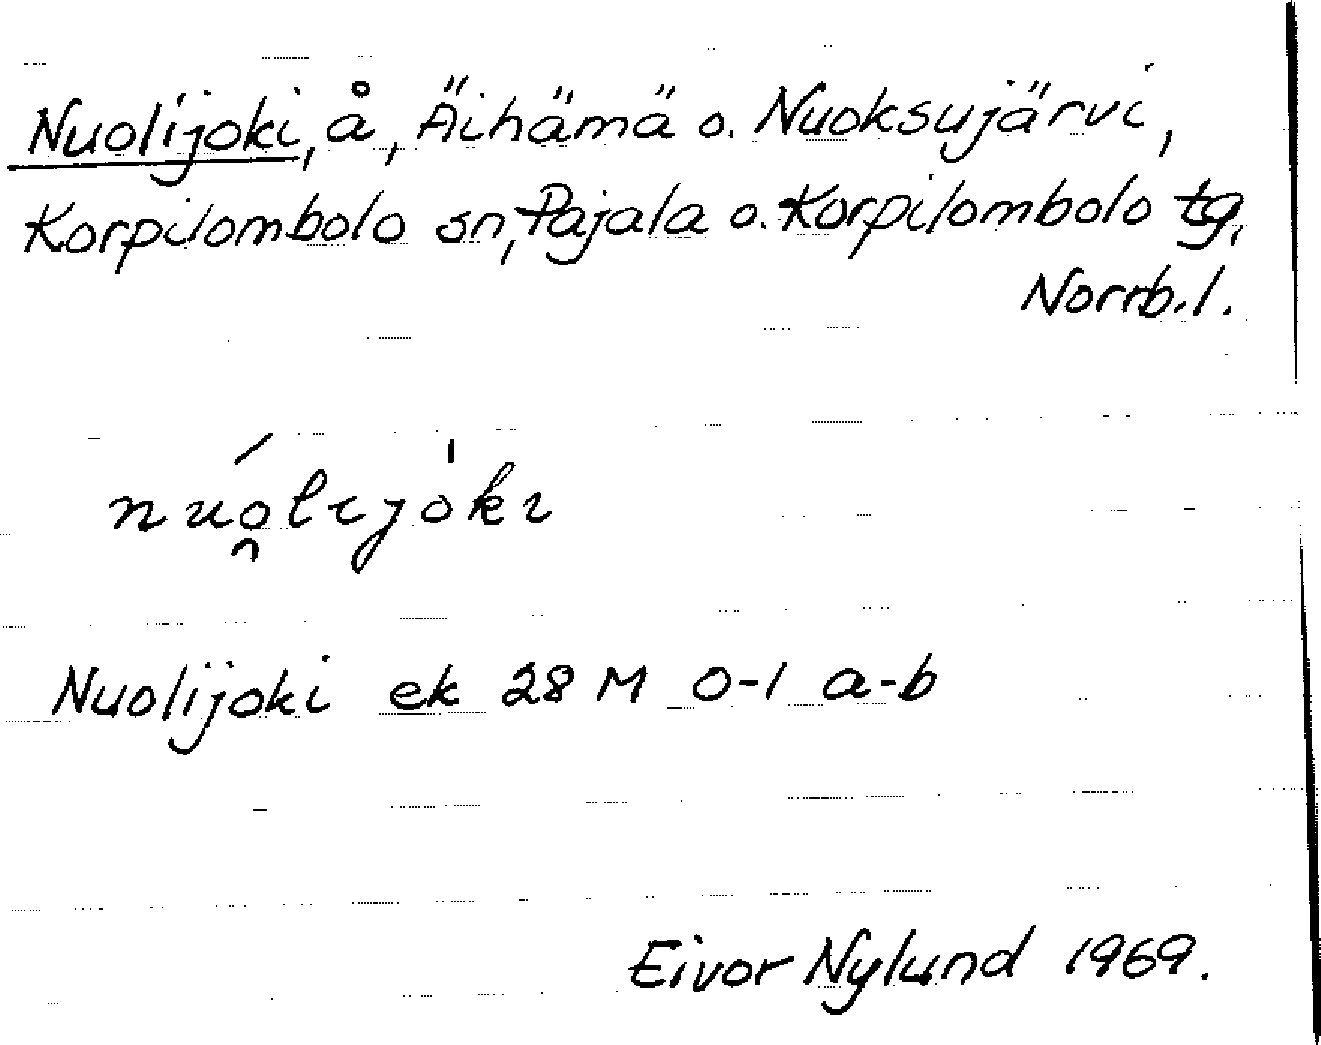 Nuolijoki, å, Äihämä o. Nuoksujärvi,
Korpilombolo sn, Pajala o. Korpilombolo tg,
Norrb.l.
nu̯ólijo̍ki
Nuolijoki ek 28 M 0-1 a-b
Eivor Nylund 1969.